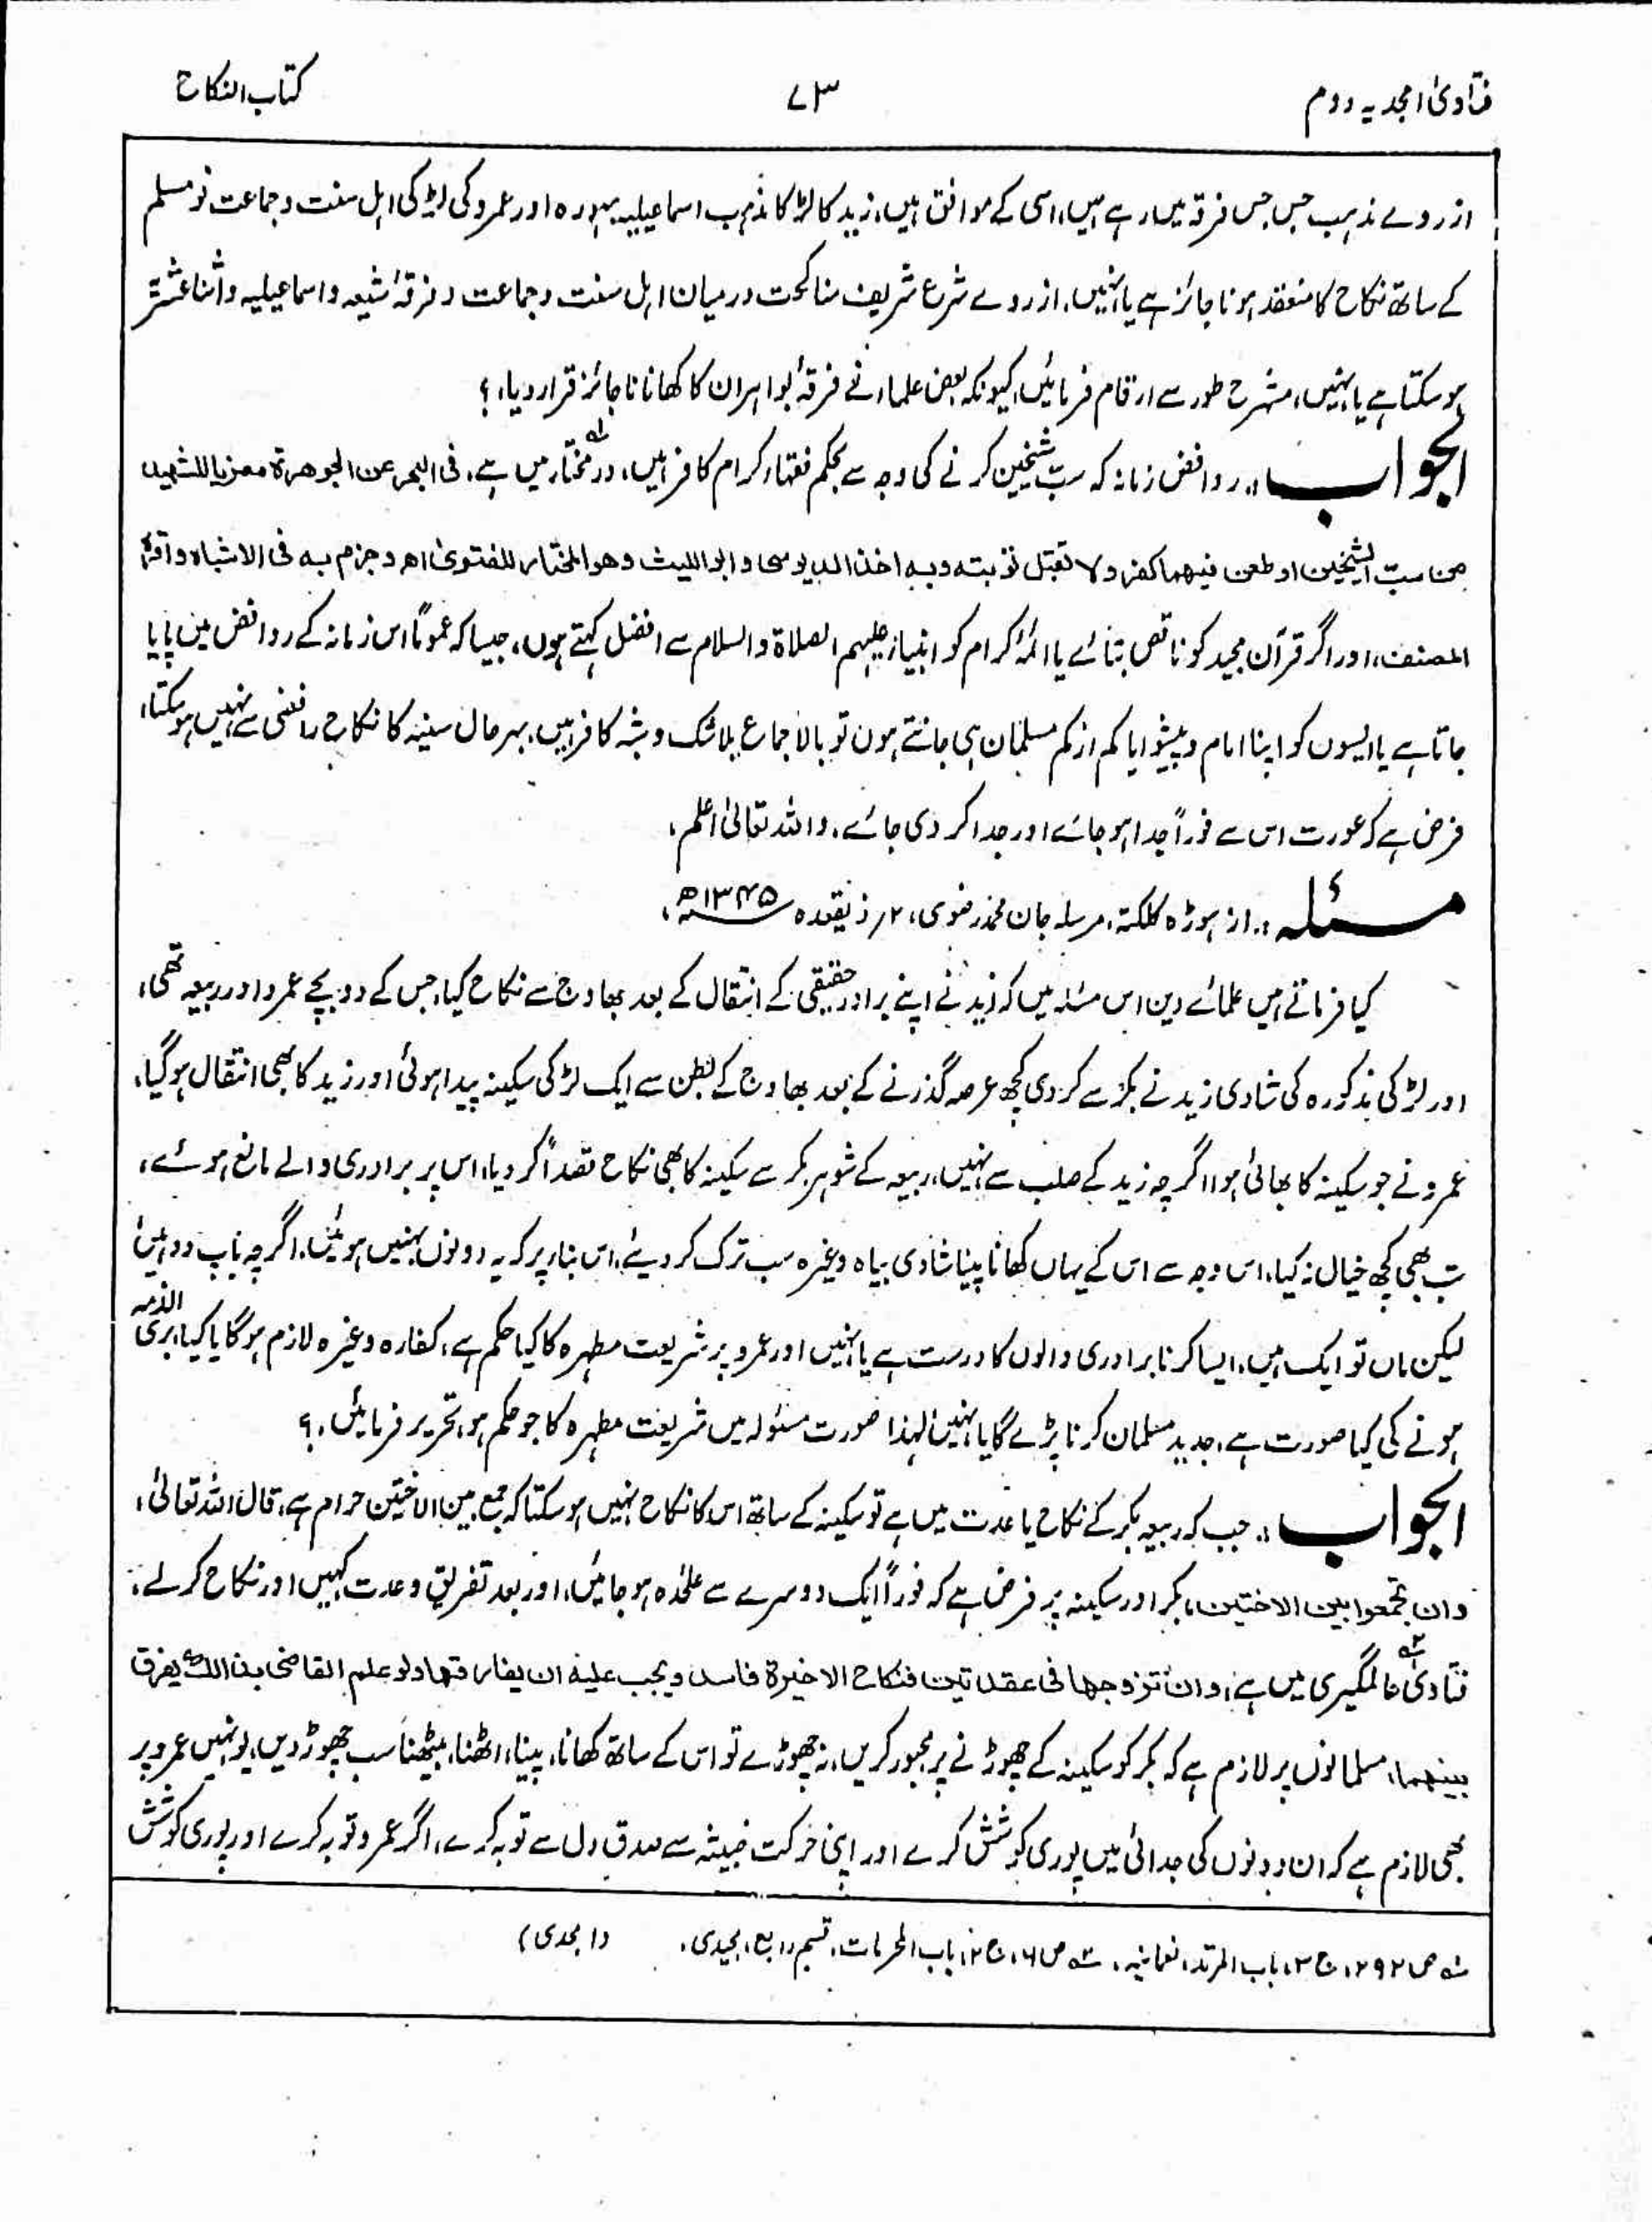 فتاویٰ امجدیہ دوم
۷۳
کتاب النکاح
از روے مذہب جس جس فرقہ میں رہے ہیں، اسی کے موافق ہیں، زید کا لڑکا مذہب اسماعیلیہ بہورہ اور عمرو کی لڑکی اہل سنت وجماعت نو مسلم
کے ساتھ نکاح کا منعقد ہونا جائز ہے یا نہیں، از روے شرع شریف مناکحت درمیان اہل سنت وجماعت و فرقۂ شیعہ و اسماعیلیہ و اثنا عشریہ
ہو سکتا ہے یا نہیں، مشرح طور سے ارقام فرمائیں، کیونکہ بعض علماء نے فرقۂ بواہران کا کھانا ناجائز قرار دیا، ؟
الجواب :۔ روافض زمانہ کہ سبّ شیخین کرنے کی وجہ سے بحکم فقہاء کرام کافر ہیں، در مختار۱ میں ہے، فی البحر عن الجوهرة معزیا للشهید
من سب الشیخین او طعن فیهما کفر ولا تقبل توبته وبه اخذ الدبوسی وابو اللیث وهو المختار للفتویٰ اھ وجزم به فی الاشباه واقره
المصنف، اور اگر قرآن مجید کو ناقص بتائے یا ائمۂ کرام کو انبیاء علیہم الصلاة والسلام سے افضل کہتے ہوں، جیسا کہ عموماً اس زمانہ کے روافض میں پایا
جاتا ہے یا ایسوں کو اپنا امام و پیشوا یا کم از کم مسلمان ہی جانتے ہوں تو بالاجماع بلا شک و شبہ کافر ہیں، بہر حال سنیہ کا نکاح رافضی سے نہیں ہو سکتا،
فرض ہے کہ عورت اس سے فوراً جدا ہو جائے اور جدا کر دی جائے، واللہ تعالیٰ اعلم،
مسئلہ :۔ از ہوڑہ کلکتہ، مرسلہ جان محمد رضوی، ۲؍ ذیقعدہ ۱۳۴۵ھ،
کیا فرماتے ہیں علمائے دین اس مسئلہ میں کہ زید نے اپنے برادر حقیقی کے انتقال کے بعد بھاوج سے نکاح کیا، جس کے دو بچے عمرو اور ربیعہ تھی،
اور لڑکی مذکورہ کی شادی زید نے بکر سے کر دی کچھ عرصہ گذرنے کے بعد بھاوج کے بطن سے ایک لڑکی سکینہ پیدا ہوئی اور زید کا بھی انتقال ہو گیا،
عمرو نے جو سکینہ کا بھائی ہوا اگرچہ زید کے صلب سے نہیں، ربیعہ کے شوہر بکر سے سکینہ کا بھی نکاح قصداً کر دیا، اس پر برادری والے مانع ہوئے،
تب بھی کچھ خیال نہ کیا، اس وجہ سے اس کے یہاں کھانا پینا شادی بیاہ وغیرہ سب ترک کر دیئے، اس بناء پر کہ یہ دونوں بہنیں ہوئیں، اگرچہ باپ دو ہیں
لیکن ماں تو ایک ہیں، ایسا کرنا برادری والوں کا درست ہے یا نہیں اور عمرو پر شریعت مطہرہ کا کیا حکم ہے، کفارہ وغیرہ لازم ہو گا یا کیا، بری الذمہ
ہونے کی کیا صورت ہے، جدید مسلمان کرنا پڑے گا یا نہیں لہذا صورت مسئولہ میں شریعت مطہرہ کا جو حکم ہو، تحریر فرمائیں، ؟
الجواب :۔ جب کہ ربیعہ بکر کے نکاح یا عدت میں ہے تو سکینہ کے ساتھ اس کا نکاح نہیں ہو سکتا کہ جمع بین الاختین حرام ہے، قال اللہ تعالیٰ،
وان تجمعوا بین الاختین، بکر اور سکینہ پر فرض ہے کہ فوراً ایک دوسرے سے علٰحدہ ہو جائیں، اور بعد تفریق و عدت کہیں اور نکاح کر لے،
فتاویٰ۲ عالمگیری میں ہے، وان تزوجها فی عقدتین فنکاح الاخیرة فاسد ویجب علیه ان یفارقها ولو علم القاضی بذالک یفرق
بینهما، مسلمانوں پر لازم ہے کہ بکر کو سکینہ کے چھوڑنے پر مجبور کریں، نہ چھوڑے تو اس کے ساتھ کھانا، پینا، اٹھنا، بیٹھنا سب چھوڑ دیں، یونہیں عمرو پر
بھی لازم ہے کہ ان دونوں کی جدائی میں پوری کوشش کرے اور اپنی حرکت خبیثہ سے صدق دل سے توبہ کرے، اگر عمرو توبہ کرے اور پوری کوشش
۱؎ ص ۲۹۲، ج ۳، باب المرتد، نعمانیہ، ۲؎ ص ۶، ج ۲، باب المحرمات، قسم رابع، مجیدی، (امجدی)